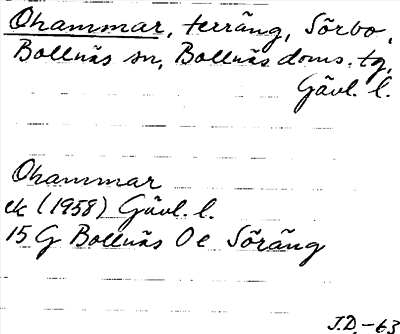 Ohammar, terräng, Sörbo,
Bollnäs sn, Bollnäs doms. tg,
Gävl. l.
Ohammar
ek (1958) Gävl. l.
15 G Bollnäs Öe Söräng
J.D. -63